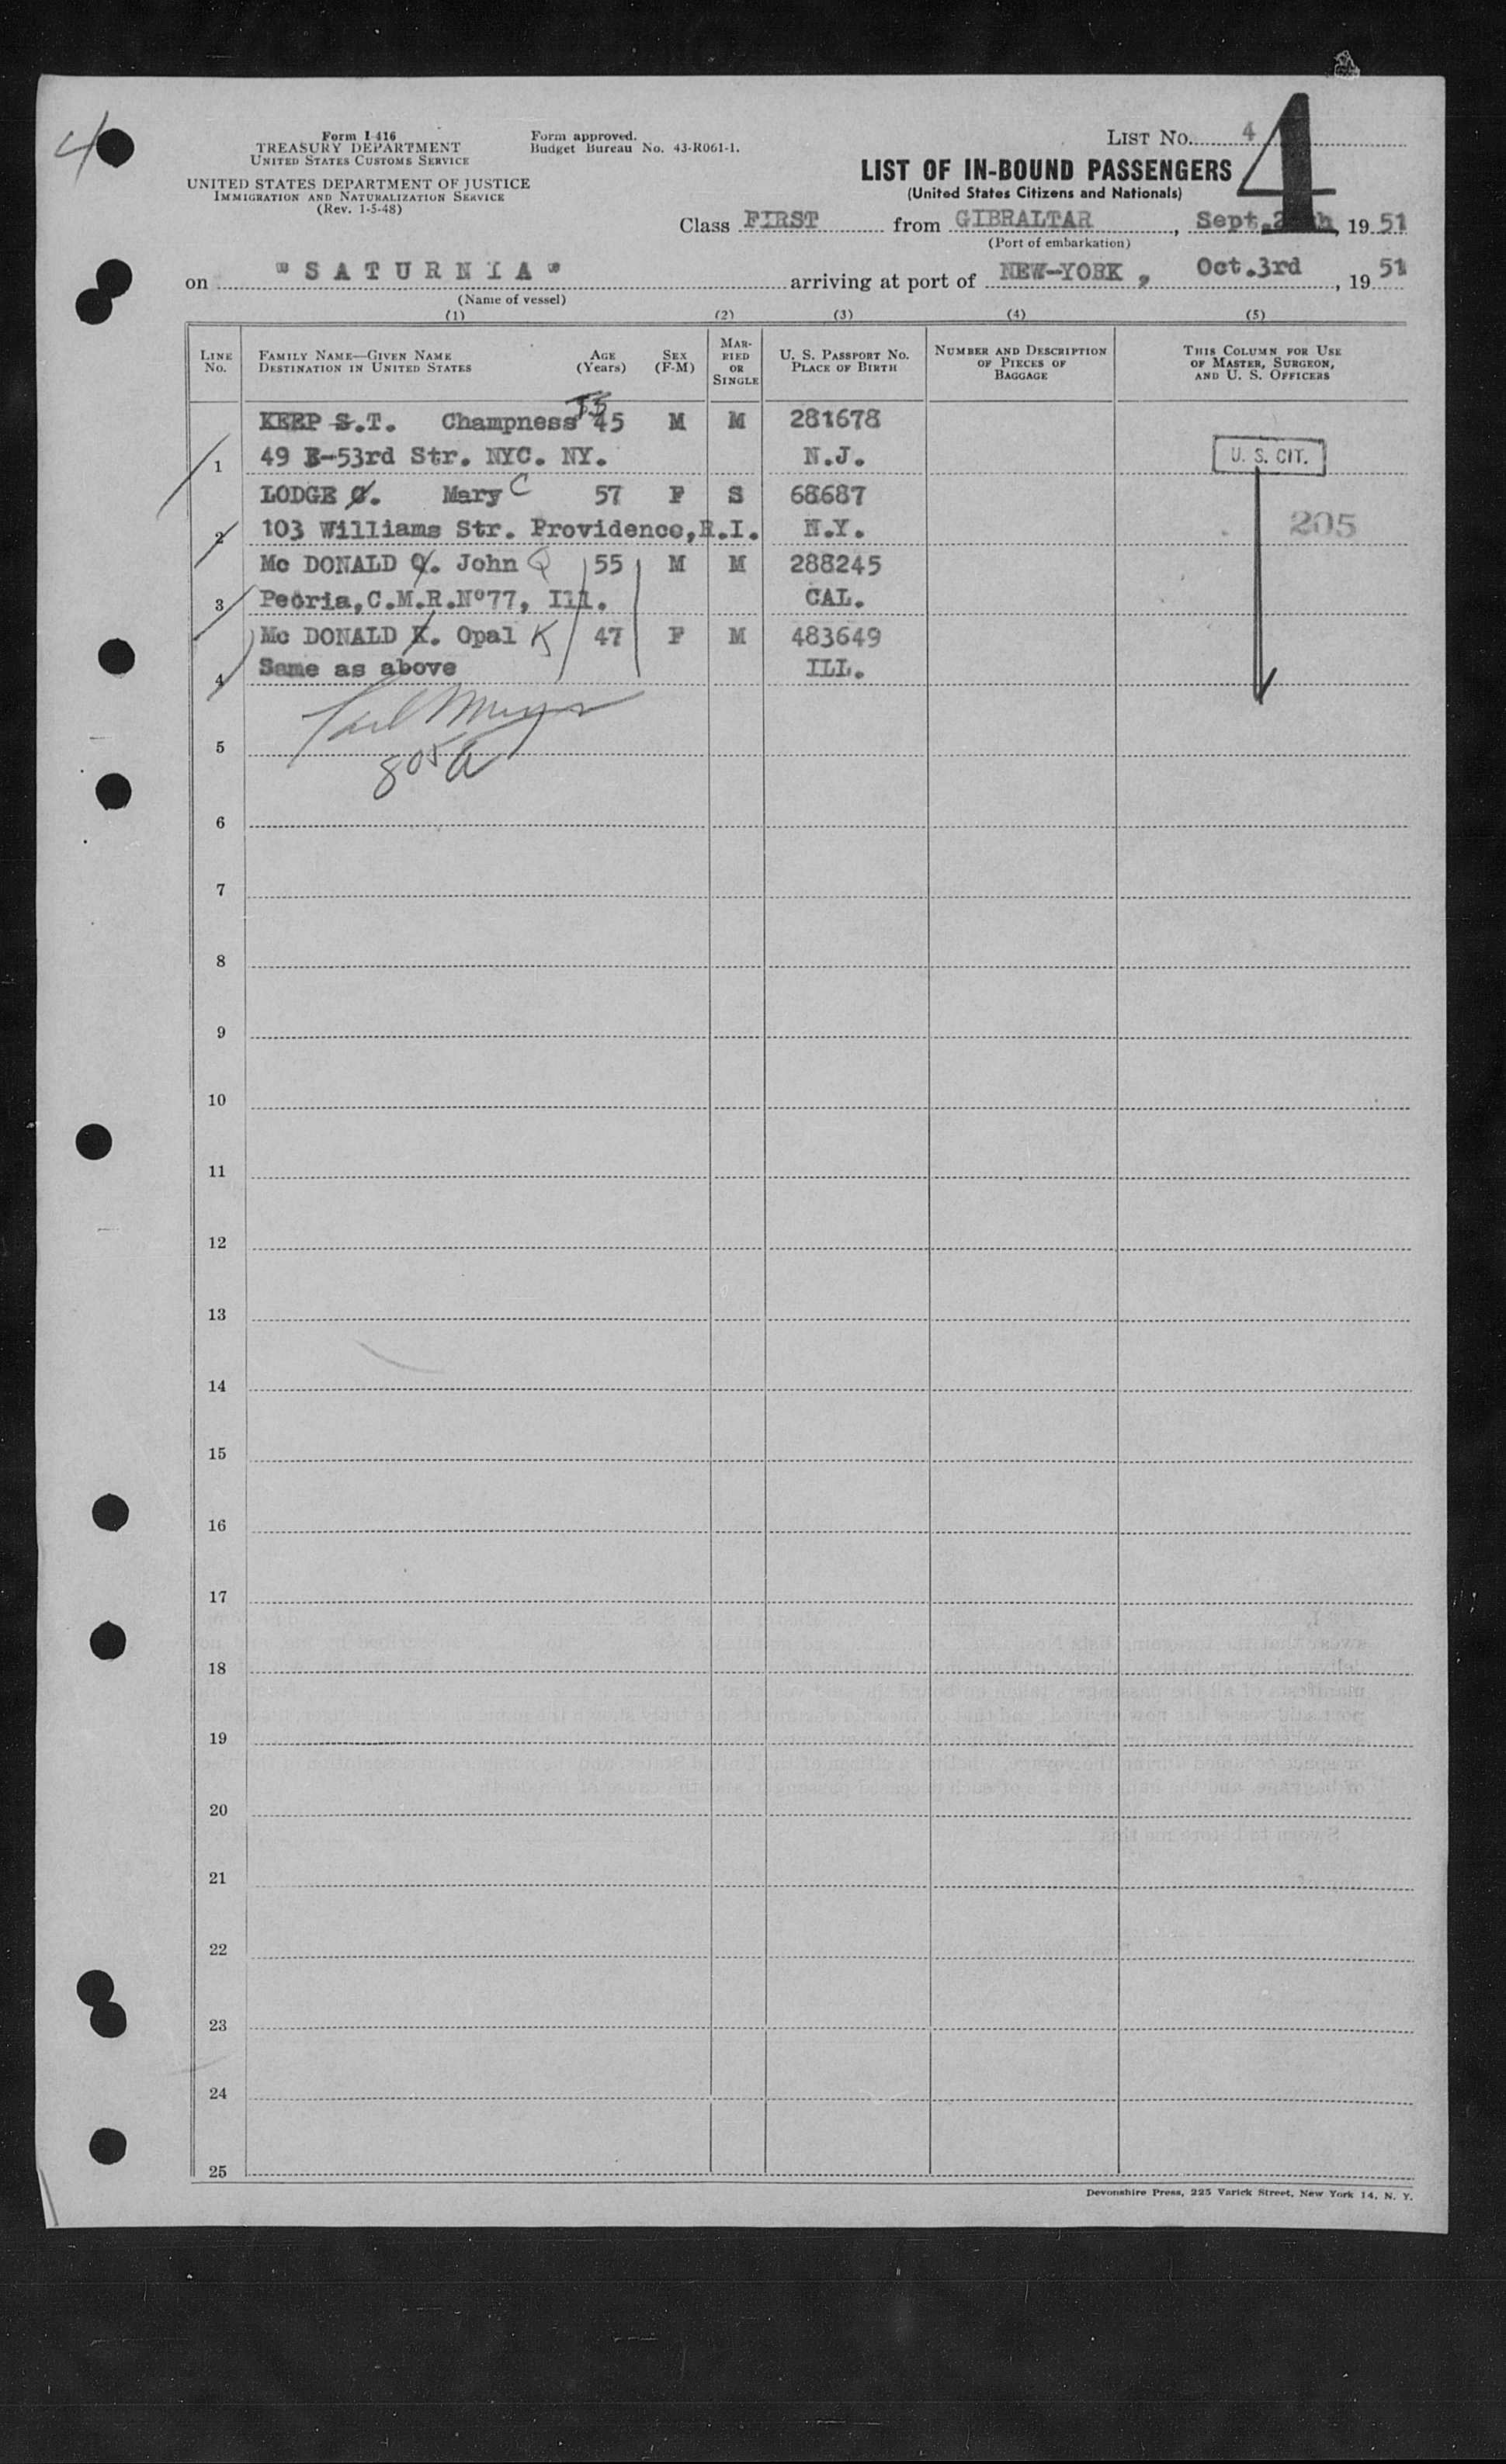 4
Form I-416
TREASURY DEPARTMENT
UNITED STATES CUSTOMS SERVICE
UNITED STATES DEPARTMENT OF JUSTICE
IMMIGRATION AND NATURALIZATION SERVICE
(Rev. 1-5-48)
Form approved.
Budget Bureau No. 43-R061-1.
LIST No. 4
4
LIST OF IN-BOUND PASSENGERS
(United States Citizens and Nationals)
Class FIRST from GIBRALTAR, Sept. 19 51
(Port of embarkation)
on "SATURNIA" arriving at port of NEW-YORK, Oct.3rd, 19 51
(Name of vessel)
(1) (2) (3) (4) (5)
LINE No. FAMILY NAME—GIVEN NAME DESTINATION IN UNITED STATES AGE (Years) SEX (F-M) MARRIED OR SINGLE U. S. PASSPORT No. PLACE OF BIRTH NUMBER AND DESCRIPTION OF PIECES OF BAGGAGE THIS COLUMN FOR USE OF MASTER, SURGEON, AND U. S. OFFICERS
55
KEEP S.T. Champness 45 M M 281678
1 49 E-53rd Str. NYC. NY. N.J. U. S. CIT.
LODGE C. Mary C 57 F S 68687
2 103 Williams Str. Providence,R.I. N.Y. 205
Mc DONALD Q. John Q 55 M M 288245
3 Peoria,C.M.R.Nº77, Ill. CAL.
Mc DONALD K. Opal K 47 F M 483649
4 Same as above ILL.
5
805 a
6
7
8
9
10
11
12
13
14
15
16
17
18
19
20
21
22
23
24
25
Devonshire Press, 225 Varick Street, New York 14, N. Y.